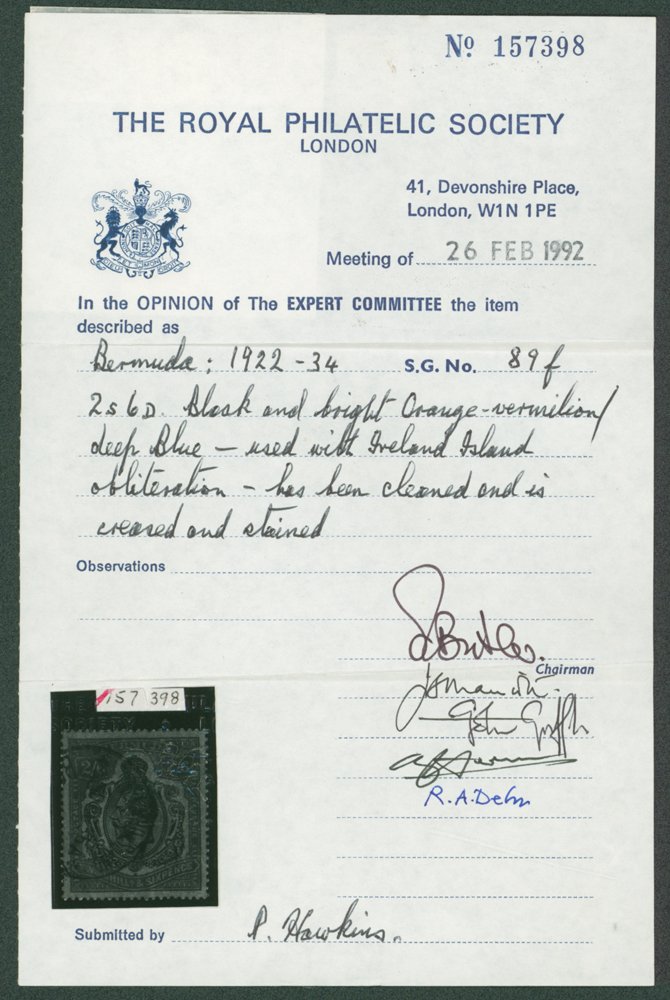 Nº 157398
THE ROYAL PHILATELIC SOCIETY
LONDON
41, Devonshire Place,
London, W1N 1PE
Meeting of 26 FEB 1992
In the OPINION of The EXPERT COMMITTEE the item
described as
Bermuda: 1922-34 S.G. No. 89f
2s6D. Black and bright Orange-vermilion/
deep Blue – used with Ireland Island
obliteration – has been cleaned and is
creased and stained
Observations
Chairman
157 398
John Griffith
R.A.Dehn
Submitted by P. Hawkins.